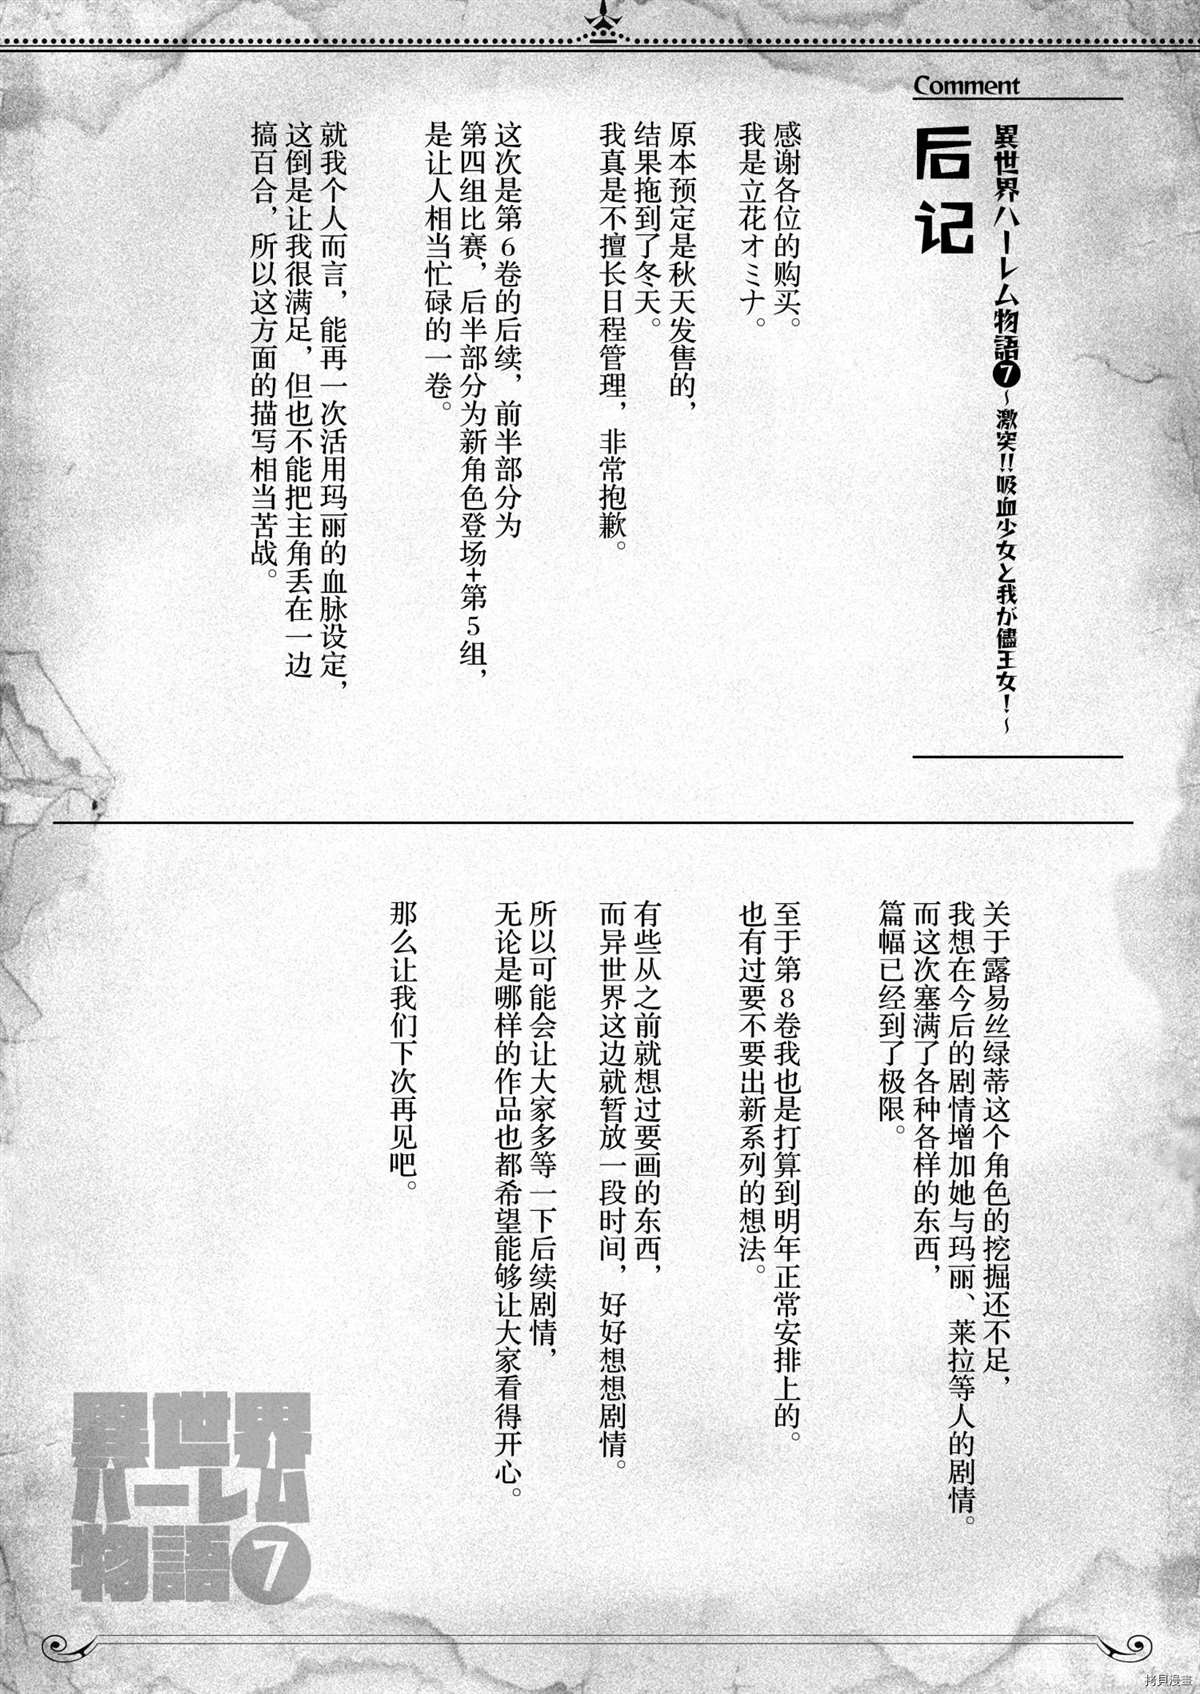 Comment
異世界ハーレム物語❼～激突!!吸血少女と我が儘王女！～
后记
感谢各位的购买。
我是立花オミナ。
原本预定是秋天发售的，
结果拖到了冬天。
我真是不擅长日程管理，非常抱歉。
这次是第6卷的后续，前半部分为
第四组比赛，后半部分为新角色登场+第5组，
是让人相当忙碌的一卷。
就我个人而言，能再一次活用玛丽的血脉设定，
这倒是让我很满足，但也不能把主角丢在一边
搞百合，所以这方面的描写相当苦战。
关于露易丝绿蒂这个角色的挖掘还不足，
我想在今后的剧情增加她与玛丽、莱拉等人的剧情。
而这次塞满了各种各样的东西，
篇幅已经到了极限。
至于第8卷我也是打算到明年正常安排上的。
也有过要不要出新系列的想法。
有些从之前就想过要画的东西，
而异世界这边就暂放一段时间，好好想想剧情。
所以可能会让大家多等一下后续剧情，
无论是哪样的作品也都希望能够让大家看得开心。
那么让我们下次再见吧。
異世界
ハーレム
物語❼
拷貝漫畫